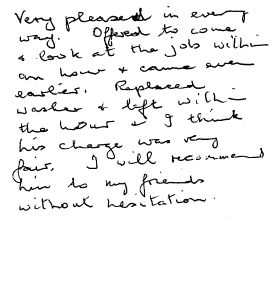 Very pleased in every
way. Offered to come
& look at the job within
an hour & came even
earlier. Replaced
washer & left within
the hour & I think
his charge was very
fair. I will recommend
him to my friends
without hesitation.